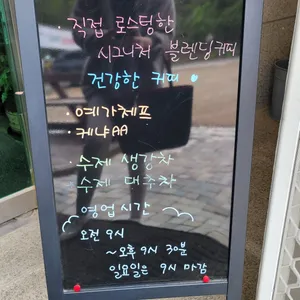 · 직접 로스팅한
시그니처 블렌딩커피
건강한 커피
· 예가체프
· 케냐AA
· 수제 생강차
수제 대추차
영업시간
오전 9시
~오후 9시 30분
일요일은 9시 마감